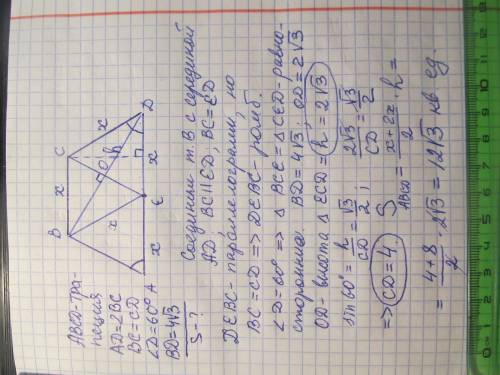 ABCD-тра-
пеция
AD=2BC
BC=CD
∠D=60°
BD=4√3
S-?
B
C
D
A
E
O
h
x
x
x
x
x
Соединим т. B с серединой
AD; BC||ED, BC=ED
DEBC-параллелограмм, но
BC=CD => DEBC-ромб.
∠D=60° => △BCE=△CED-равно-
сторонние. BD=4√3; OD=2√3
OD-высота △ECD=h=2√3
sin60°=h/CD=√3/2; 2√3/CD=√3/2
=> CD=4. S ABCD = (x+2x)/2 · h =
= (4+8)/2 · 2√3 = 12√3 кв ед.
0
1
2
3
4
5
6
7
8
9